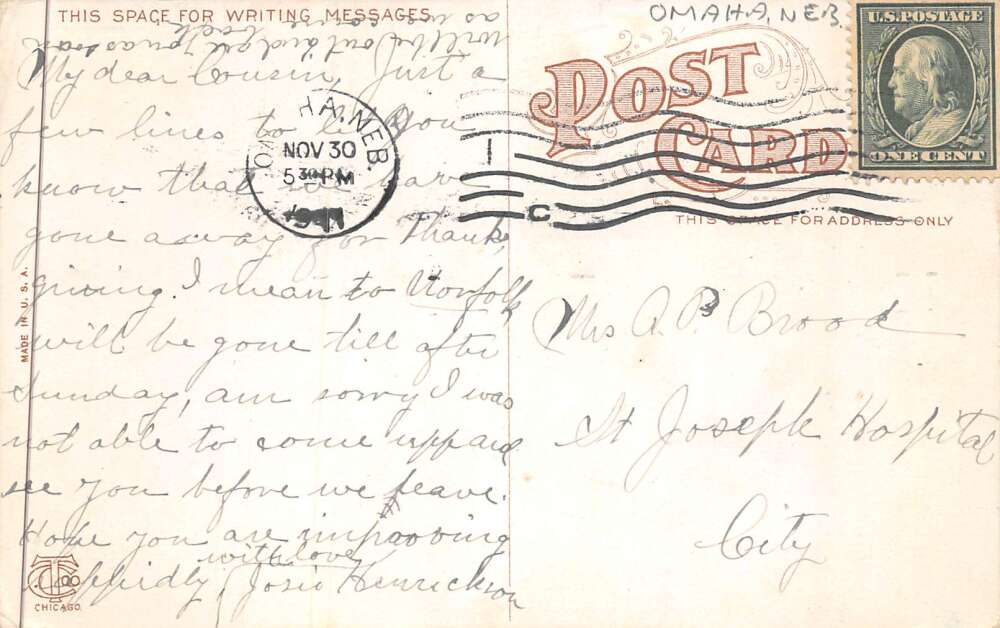 THIS SPACE FOR WRITING MESSAGES
OMAHA, NEB.
My dear Cousin, Just a
few lines to let you
know that we have
gone away for Thanks
giving. I mean to Norfolk
will be gone till after
Sunday, am sorry I was
not able to come up and
see you before we leave.
Hope you are improoving
rappidly with love
Josie Henrickson
will be out and see you as soon
as we come back
MADE IN U.S.A.
CTC
CHICAGO
NEB.
NOV 30
5 30 PM
1911
C
POST
CARD
THIS SPACE FOR ADDRESS ONLY
U.S. POSTAGE
ONE CENT
Mrs A. P. Brood
St Joseph Hospital
City